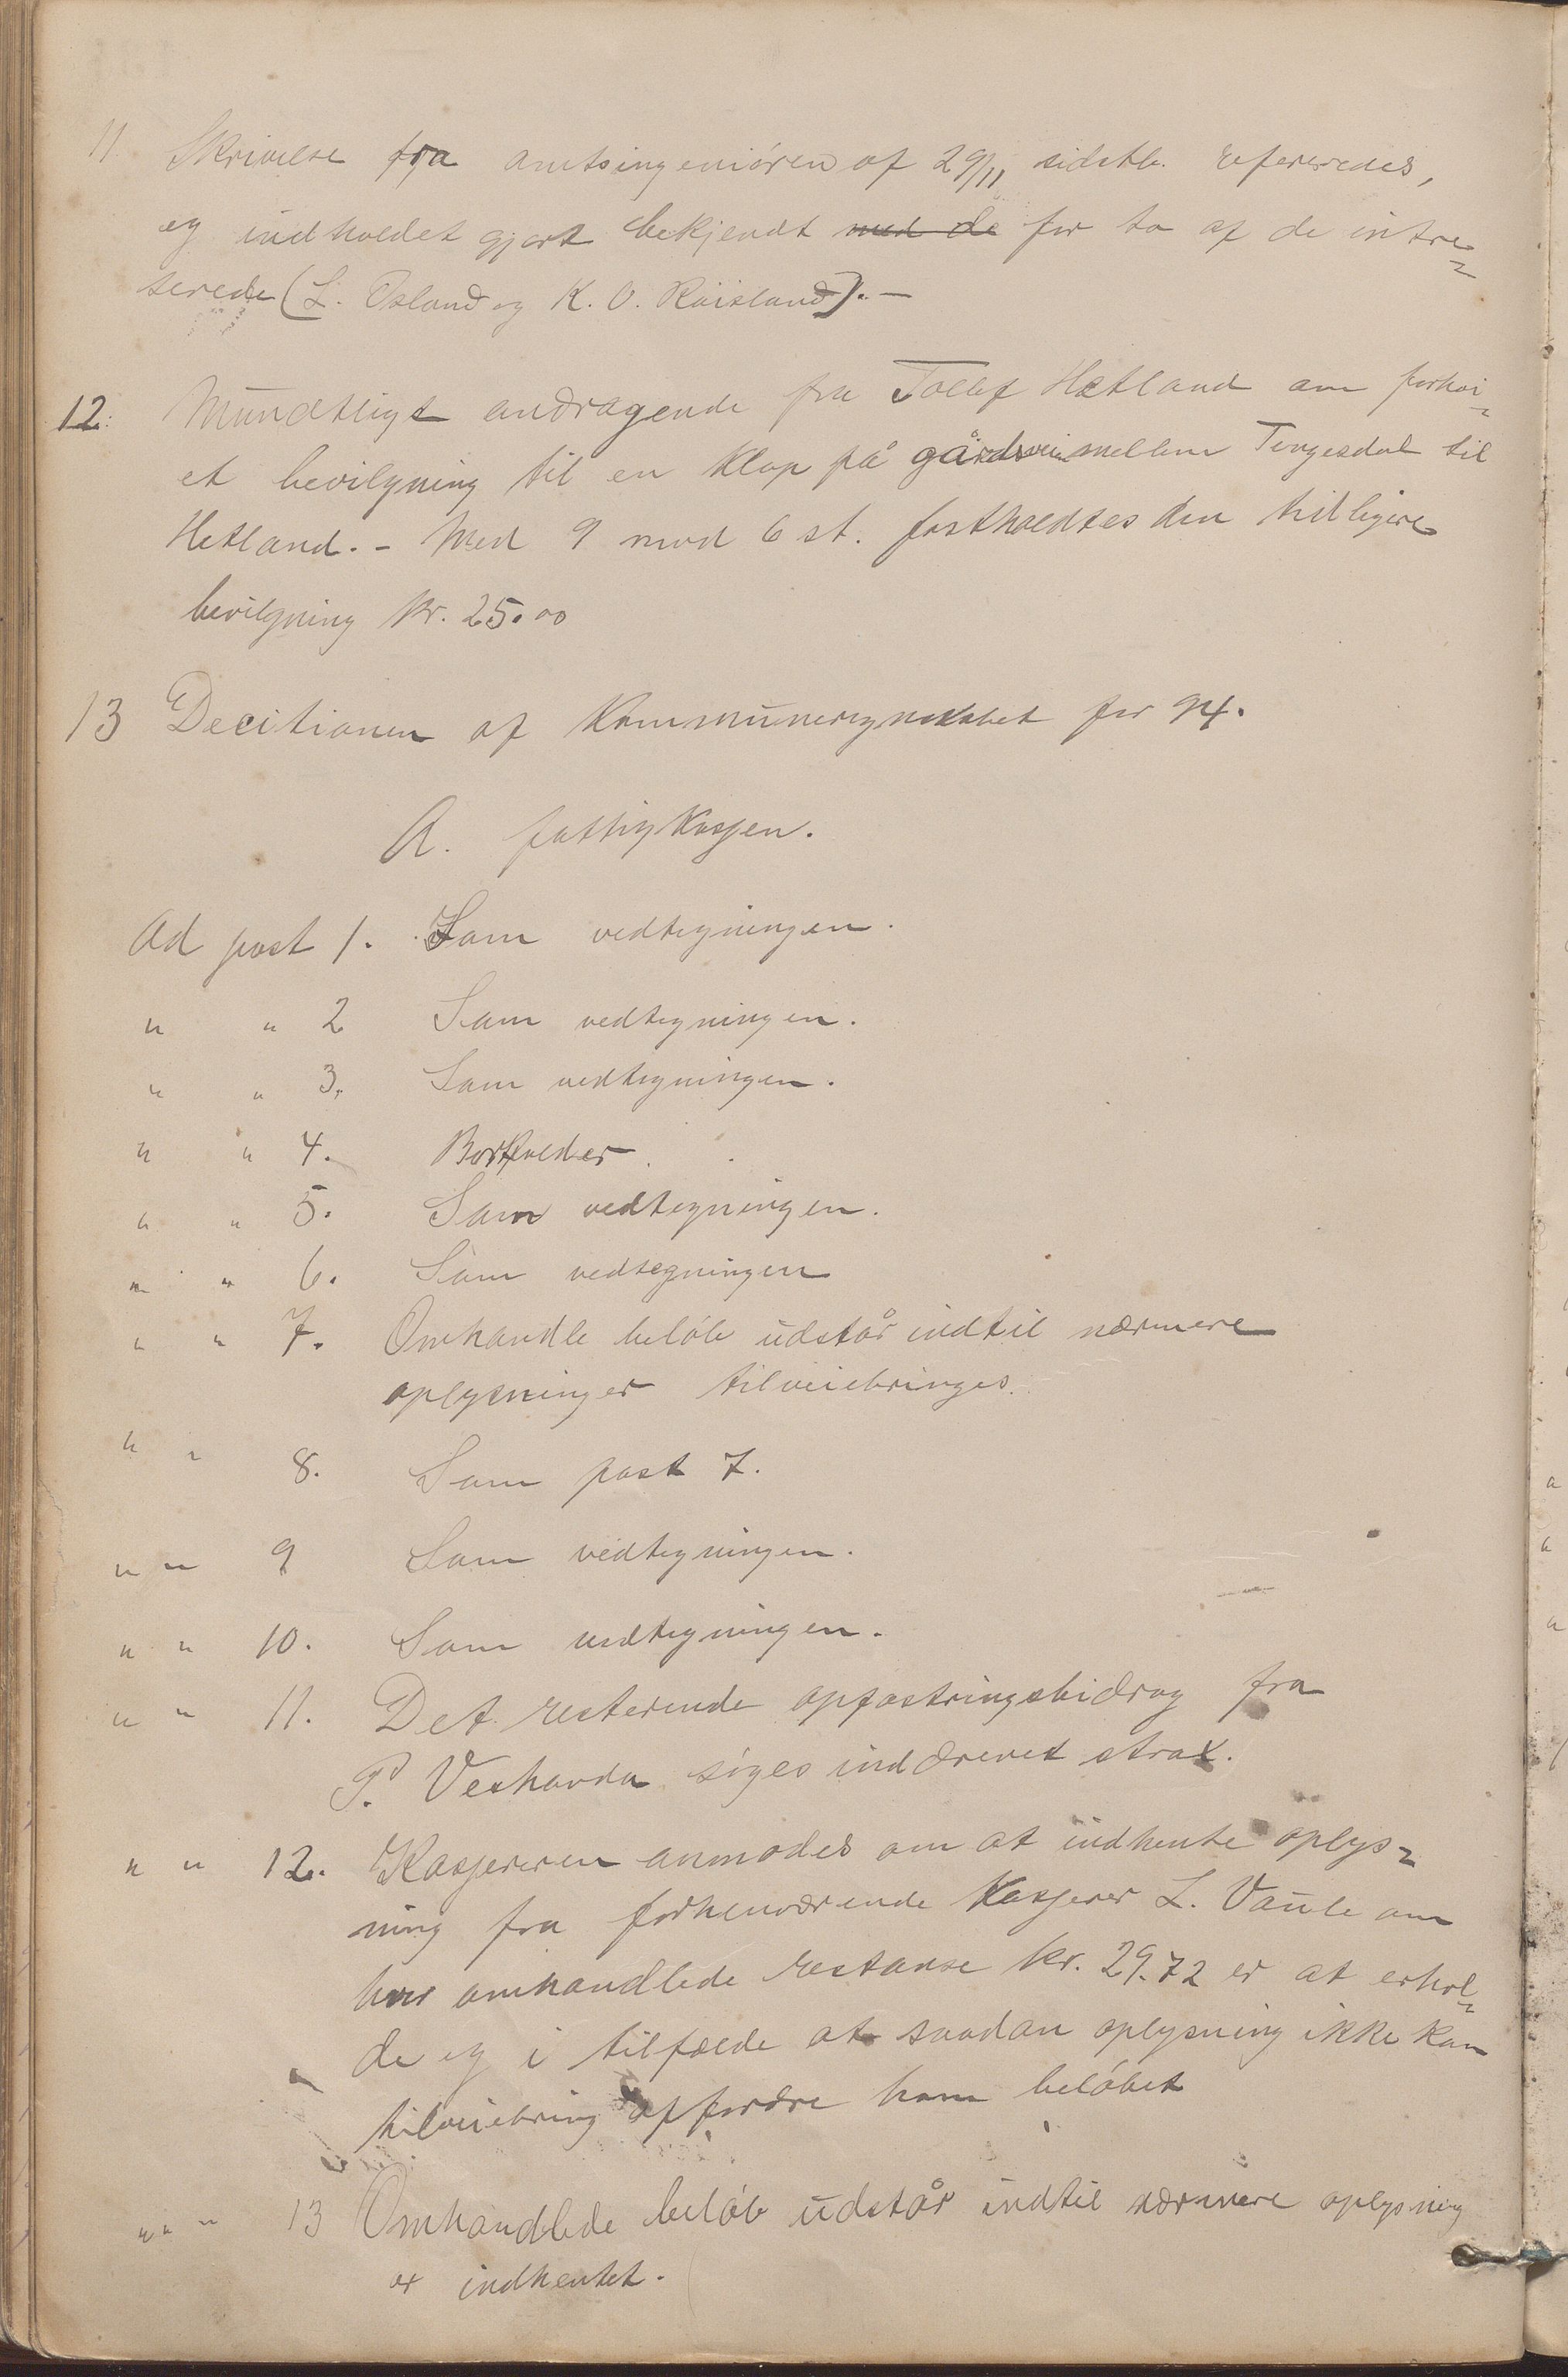 11 Skrivelse fra amtsingeniøren af 29/11 sidstl. refereredes,
og indholdet gjort bekjendt med de for to af de intre=
serede (L. Osland og K. O. Røisland). —
12. Mundtligt andragende fra Tollef Hetland om forhøi=
et bevilgning til en klop på gårdsvei mellem Tengesdal til
Hetland. - Med 9 mod 6 st. fastholdtes den tidligere
bevilgning kr. 25.00
13 Decitionen af kommuneregnskabet for 94.
A. fattigkassen.
Ad post 1. Som vedtegningen.
" " 2 Som vedtegningen.
" " 3. Som vedtegningen.
" " 4. Bortfalder.
" " 5. Som vedtegningen.
" " 6. Som vedtegningen
" " 7. Omhandle beløb udstår indtil nærmere
oplysninger tilveiebringes.
" " 8. Som post 7.
" " 9 Som vedtegningen.
" " 10. Som vedtegningen.
" " 11. Det resterende opfostringsbidrag fra
P. søges inddrevet strax.
" " 12. Kassereren anmodes om at indhente oplys=
ning fra forhenværende kasserer L. Vaule om
hvor omhandlede restanse kr. 29.72 er at erhol=
de og i tilfælde at saadan oplysning ikke kan
tilveiebring affordre ham beløbet
" " 13 Omhandlede beløb udstår indtil nærmere oplysning
er indhentet.